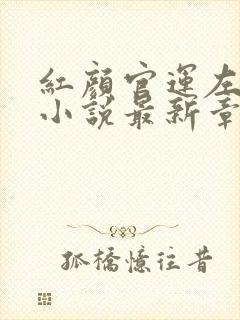 紅顏官運左
小說最新章
孤橋憶往昔